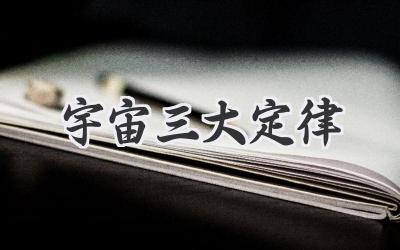 宇宙三大定律